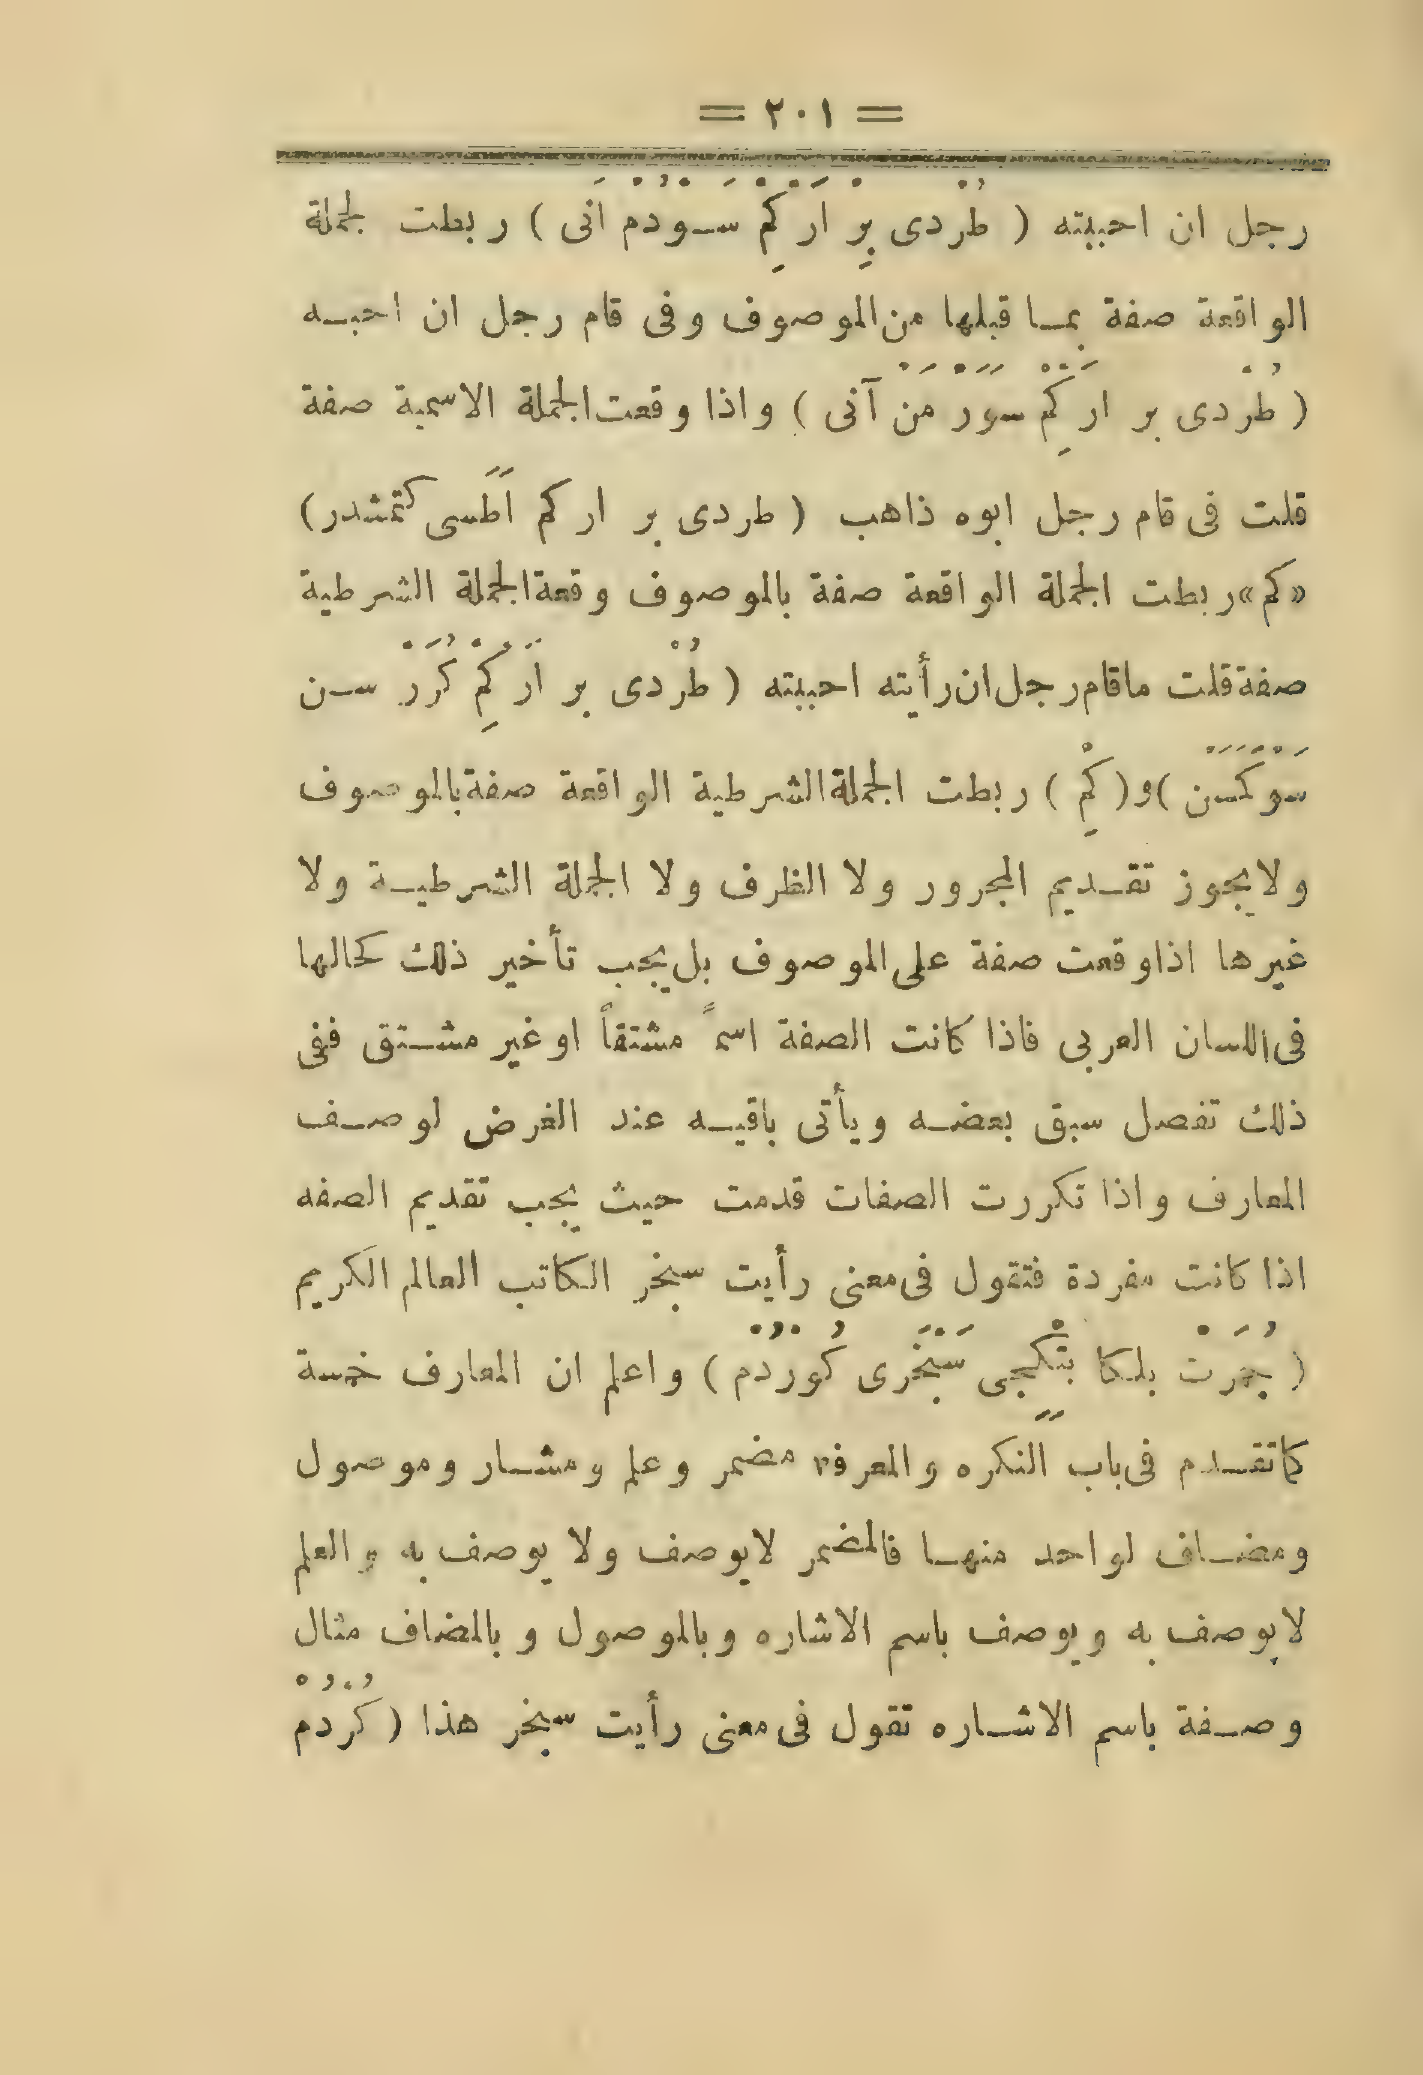 = ٢٠١ =
رجل ان احببته ( طُرْدى بِرْ اَرْ كِمْ سَوْدُمْ اَنى ) ربطت لجملة
الواقعة صفة بمـا قبلها من الموصوف وفى قام رجل ان احبـه
( طُرْدى بر ار كِمْ سَوَرْ مَنْ آنى ) واذا وقعت الجملة الاسمية صفة
قلت فى قام رجل ابوه ذاهب ( طردى بر ار كم اَطَسى كتمشدر )
«كم» ربطت الجملة الواقعة صفة بالموصوف وقعة الجملة الشرطية
صفة قلت ماقام رجل ان رأيته احببته ( طُرْدى بر اَرْ كِمْ كُرَرْ سـن
سَوْكَسَنْ ) و( كِمْ ) ربطت الجملة الشرطية الواقعة صفة بالموصوف
ولا يجوز تقـديم المجرور ولا الظرف ولا الجملة الشرطيـة ولا
غيرها اذا وقعت صفة على الموصوف بل يجب تأخير ذلك كحالها
فى اللسان العربى فاذا كانت الصفة اسمً مشتقاً او غير مشـتق ففى
ذلك تفصل سبق بعضـه ويأتى باقيـه عند الغرض لوصـف
المعارف واذا تكررت الصفات قدمت حيث يجب تقديم الصفه
اذا كانت مفردة فتقول فى معنى رأيت سنجر الكاتب العالم الكريم
( جُمَرْت بلكا بتكْجى سَنْجَرى كُورْدُمْ ) واعلم ان المعارف خمسة
كاتقـدم فى باب النكره والمعرفه مضمر وعلم ومشـار وموصول
ومضـاف لواحد منهـا فالمضمر لايوصف ولا يوصف به والعلم
لايوصف به ويوصف باسم الاشاره وبالموصول وبالمضاف مثال
وصـفة باسم الاشـاره تقول فى معنى رأيت سنجر هذا ( كُرْدُمْ